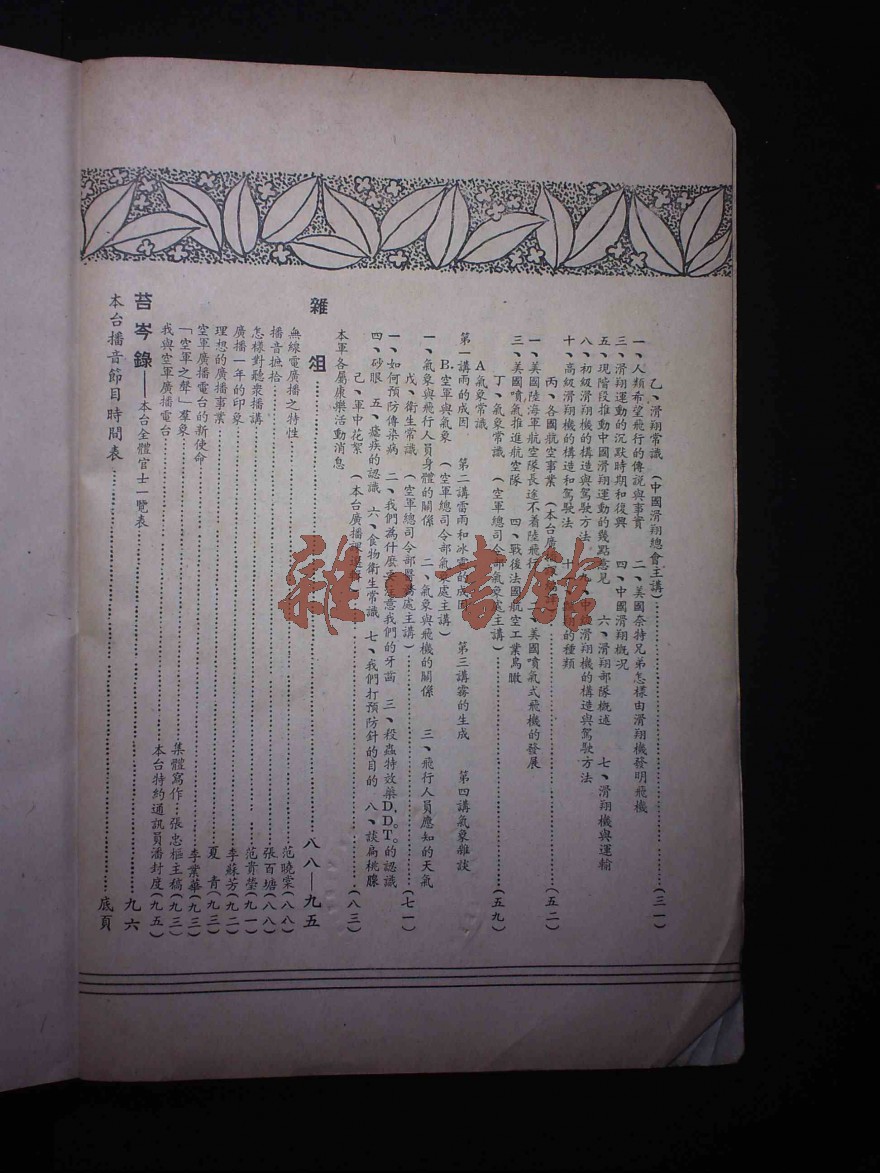 乙、滑翔常識 (中國滑翔總會主講)………(三一)
一、人類希望飛行的傳說與事實 二、美國奈特兄弟怎樣由滑翔機發明飛機
三、滑翔運動的沉默時期和復興 四、中國滑翔概況
五、現階段推動中國滑翔運動的幾點意見 六、滑翔部隊概述 七、滑翔機與運輸
八、初級滑翔機的構造與駕駛方法 九、中級滑翔機的構造與駕駛方法
十、高級滑翔機的構造和駕駛法 的種類
丙、各國航空事業 (本台廣………(五二)
一、美國陸海軍航空隊長途不着陸飛行 二、美國噴氣式飛機的發展
三、美國噴氣推進航空隊 四、戰後法國航空工業鳥瞰
丁、氣象常識 (空軍總司令部氣象處主講)………(五九)
A 氣象常識
第一講雨的成因 第二講雷雨和冰雹的成因 第三講霧的生成 第四講氣象雜談
B.空軍與氣象 (空軍總司令部氣象處主講)
一、氣象與飛行人員身體的關係 二、氣象與飛機的關係 三、飛行人員應知的天氣
戊、衛生常識 (空軍總司令部醫務處主講)………(七一)
一、如何預防傳染病 二、我們為什麼要注意我們的牙齒 三、殺蟲特效藥D.D.T.的認識
四、砂眼 五、瘧疾的認識 六、食物衛生常識 七、我們打預防針的目的 八、談扁桃腺
己、軍中花絮 (本台廣播課選輯)………(八三)
本軍各屬康樂活動消息
雜俎………八八—九五
無線電廣播之特性………范曉棠(八八)
播音摭拾………張百塘(八八)
怎樣對聽衆播講………范貴瑩(九一)
廣播一年的印象………李蘇芳(九二)
理想的廣播事業………夏青(九三)
空軍廣播電台的新使命………李業華(九三)
「空軍之聲」羣象………集體寫作:張忠樞主稿(九三)
我與空軍廣播電台………本台特約通訊員潘封度(九五)
苔岑錄——本台全體官士一覽表………九六
本台播音節目時間表………底頁
雜·書館